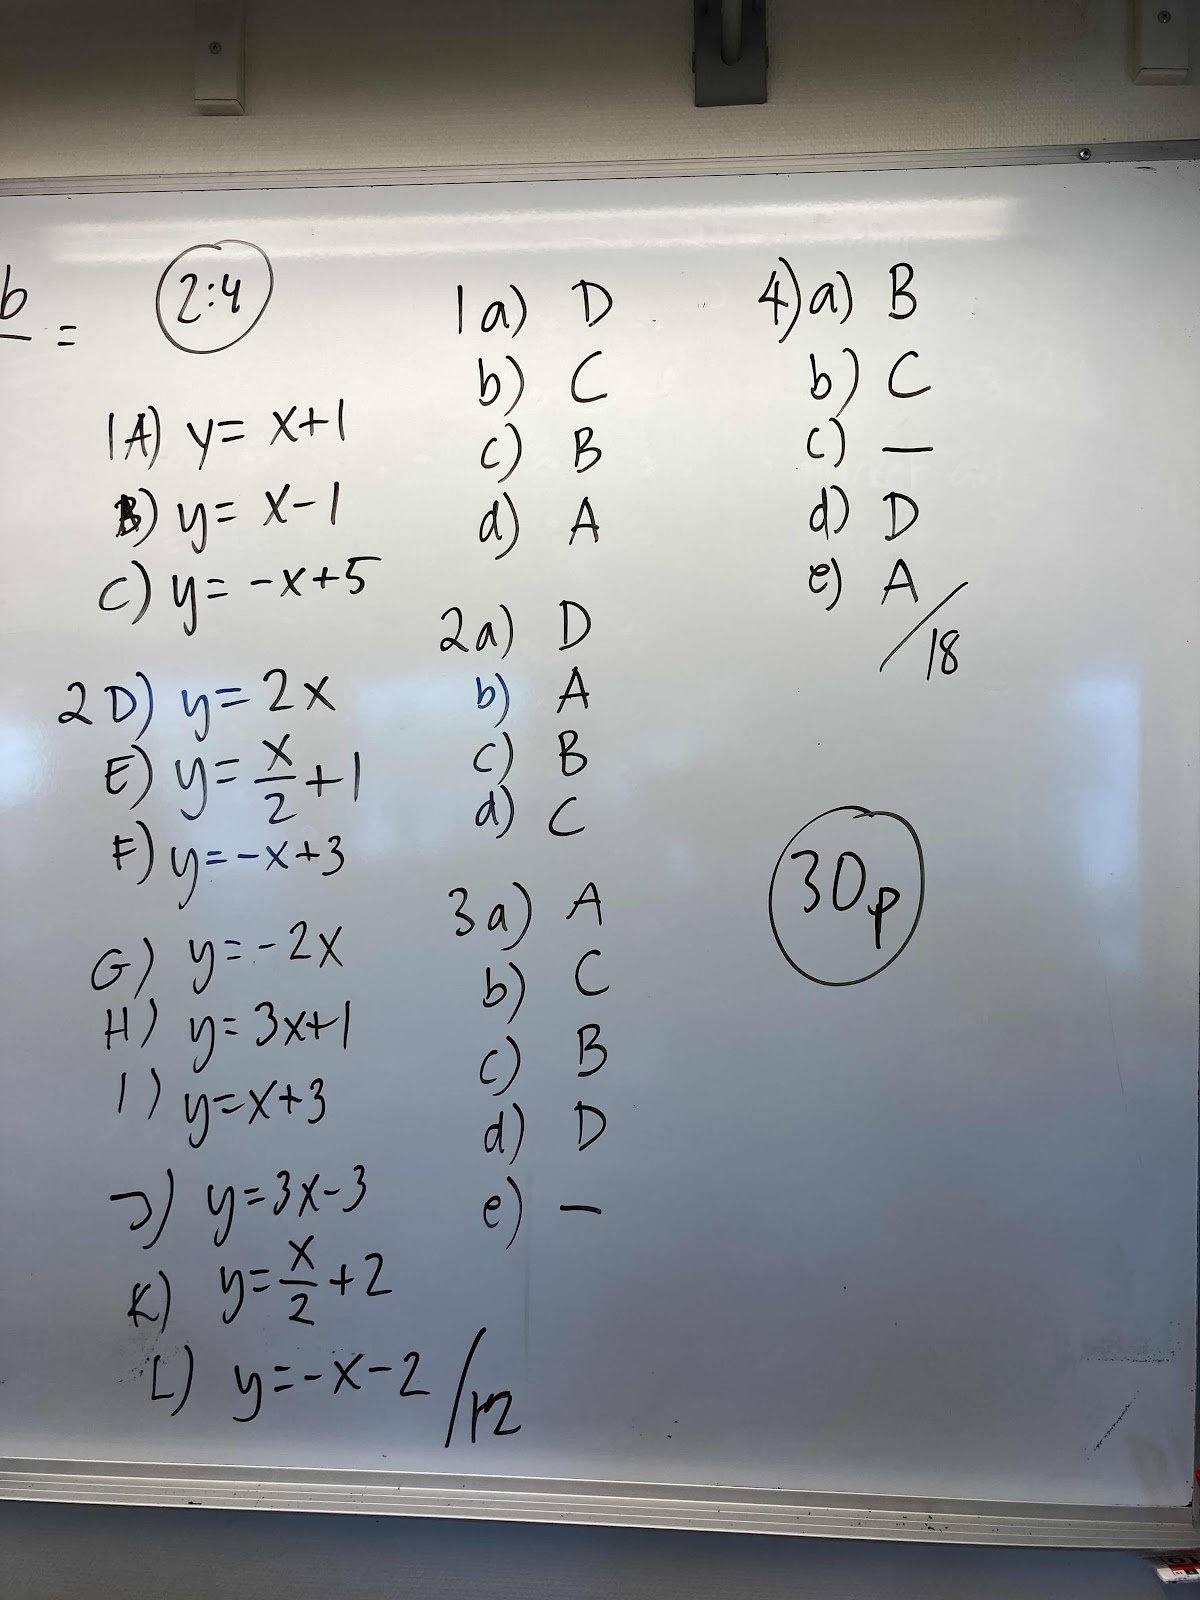 b
=
2:4
1A) y = x+1
B) y = x-1
C) y = -x+5
2D) y = 2x
E) y = x/2 + 1
F) y = -x+3
G) y = -2x
H) y = 3x+1
I) y = x+3
J) y = 3x-3
K) y = x/2 + 2
L) y = -x-2 /12
1a) D
b) C
c) B
d) A
2a) D
b) A
c) B
d) C
3a) A
b) C
c) B
d) D
e) —
4)a) B
b) C
c) —
d) D
e) A
/18
30p